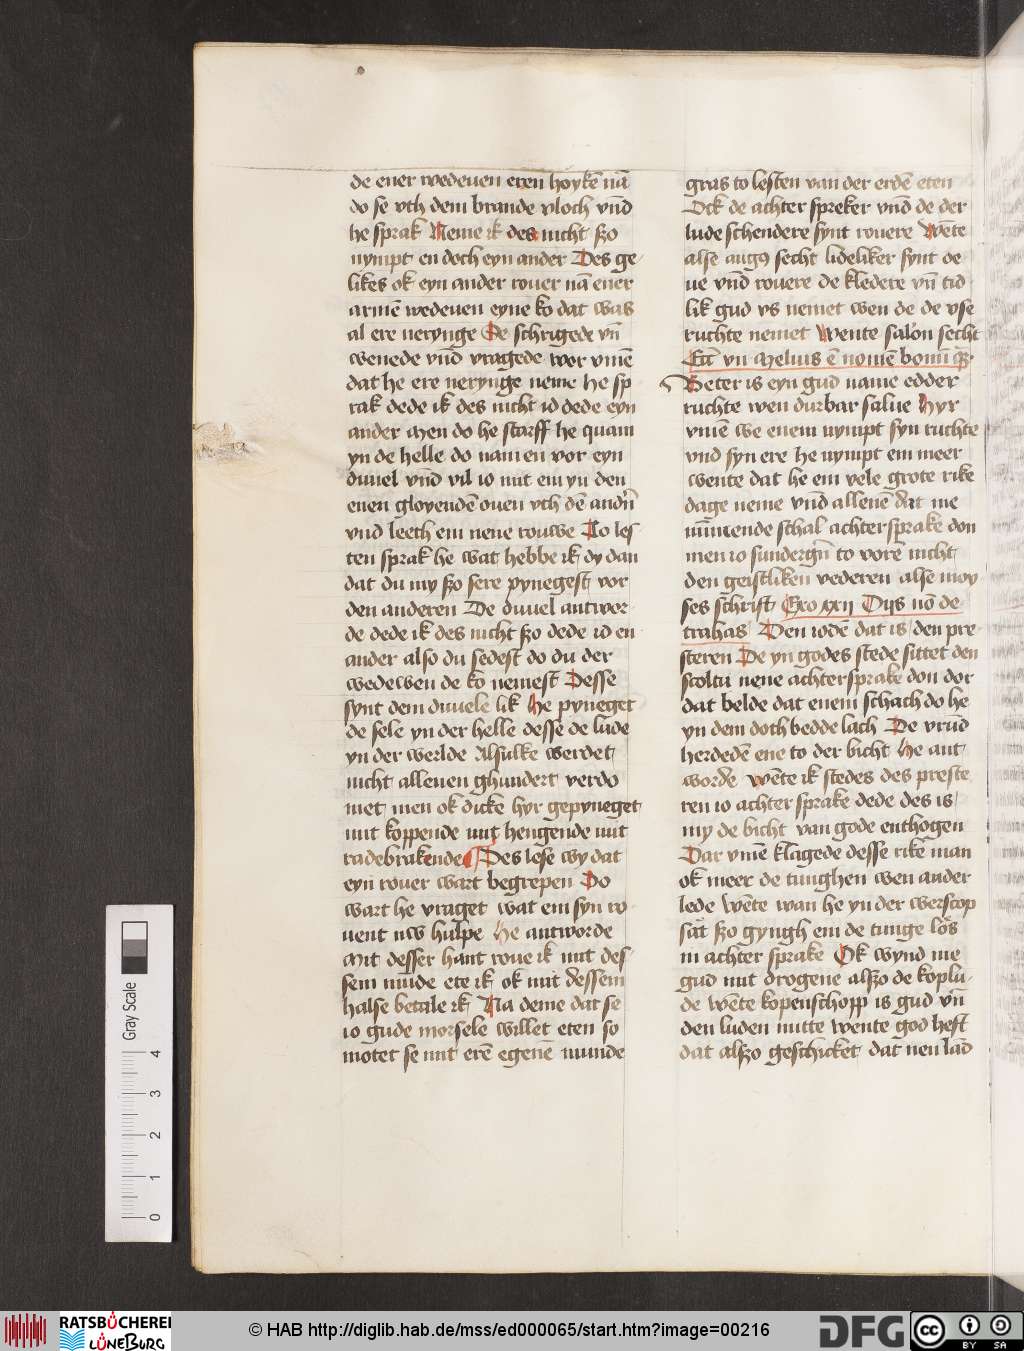 de ener wedewen eren hoyke nā
do se vth dem brande vloch vnd
he sprak Neme ik des nicht szo
nympt en doch eyn ander Des ge
likes ok eyn ander rover nā ener
armē wedewen eyne ko dat was
al ere nerynge De schrigede vn̄
wenede vnd vragede wor vmē
dat he ere nerynge neme he sp
rak dede ik des nicht id dede eyn
ander Men do he starff he quam
yn de helle do nam en vor eyn
duuel vnd vil io mit em yn den
enen gloyendē ouen vth dē andn̄
vnd leeth em nene rouwe To les
ten sprak he wat hebbe ik dy dan
dat du my szo sere pynegest vor
den anderen De duuel antwor
de dede ik des nicht szo dede id en
ander also du sedest do du der
wedewen de ko nemest Desse
synt dem duuele lik He pyneget
de sele yn der helle desse de lude
yn der werlde Alsulke werdet
nicht allenen ghundert verdo
met men ok dicke hyr gepyneget
mit koppende mit hengende mit
radebrakende Des lese wy dat
eyn rover wart begrepen Do
wart he vraget wat em syn ro
uent nw hulpe He antworde
Mit desser hant roue ik mit des
sem munde ete ik ok mit dessem
halse betale ik Na deme dat se
io gude morsele willet eten so
motet se mit erē egenē munde
gras to lesten van der erdē eten
Ock de achter spreker vnd de der
lude schendere synt rouere Wēte
alse augꝯ secht lideliker synt de
ue vnd rouere de kledere vn̄ tid
lik gud vs nemet wen de de vse
ruchte nemet Wente salōn secht
Ecc̄ vii Melius ē nomē bonū qꝫ
Beter is eyn gud name edder
ruchte wen durbar salue Hyr
vmē we enem nympt syn ruchte
vnd syn ere he nympt em meer
wente dat he em vele grote rike
dage neme vnd allenē dat me
nūmende schal achtersprake don
men io sundergn̄ to vorē nicht
den geistliken vederen alse moy
ses schrift Exo xxii Diis nō de
trahas Den iodē dat is den pre
steren De yn godes stede sittet den
scoltu nene achtersprake don dor
dat belde dat enem schach do he
yn dem doch bedde lach De vrūd
herdedē ene to der bicht He ant
worde wēte ik stedes des preste
ren io achter sprake dede des is
my de bicht van gode enthogen
Dar vmē klagede desse rike man
ok meer de tunghen wen ander
lede wēte wan he yn der werscop
sat szo gyngh em de tunge lōs
in achter sprake Ok wynd me
gud mit drogene alszo de koplu
de wēte kopenschopp is gud vn̄
den luden nutte wente god heft
dat alszo geschicket dat nen lād
Gray Scale
0 1 2 3 4
RATSBÜCHEREI
LÜNEBURG
© HAB http://diglib.hab.de/mss/ed000065/start.htm?image=00216
DFG
cc
BY SA